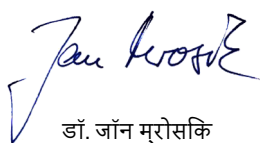 Jan Mrosik
डॉ. जॉन म्रोसकि